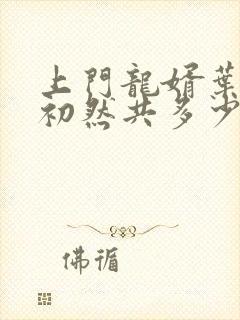 上門龍婿葉
初然共多少
佛循